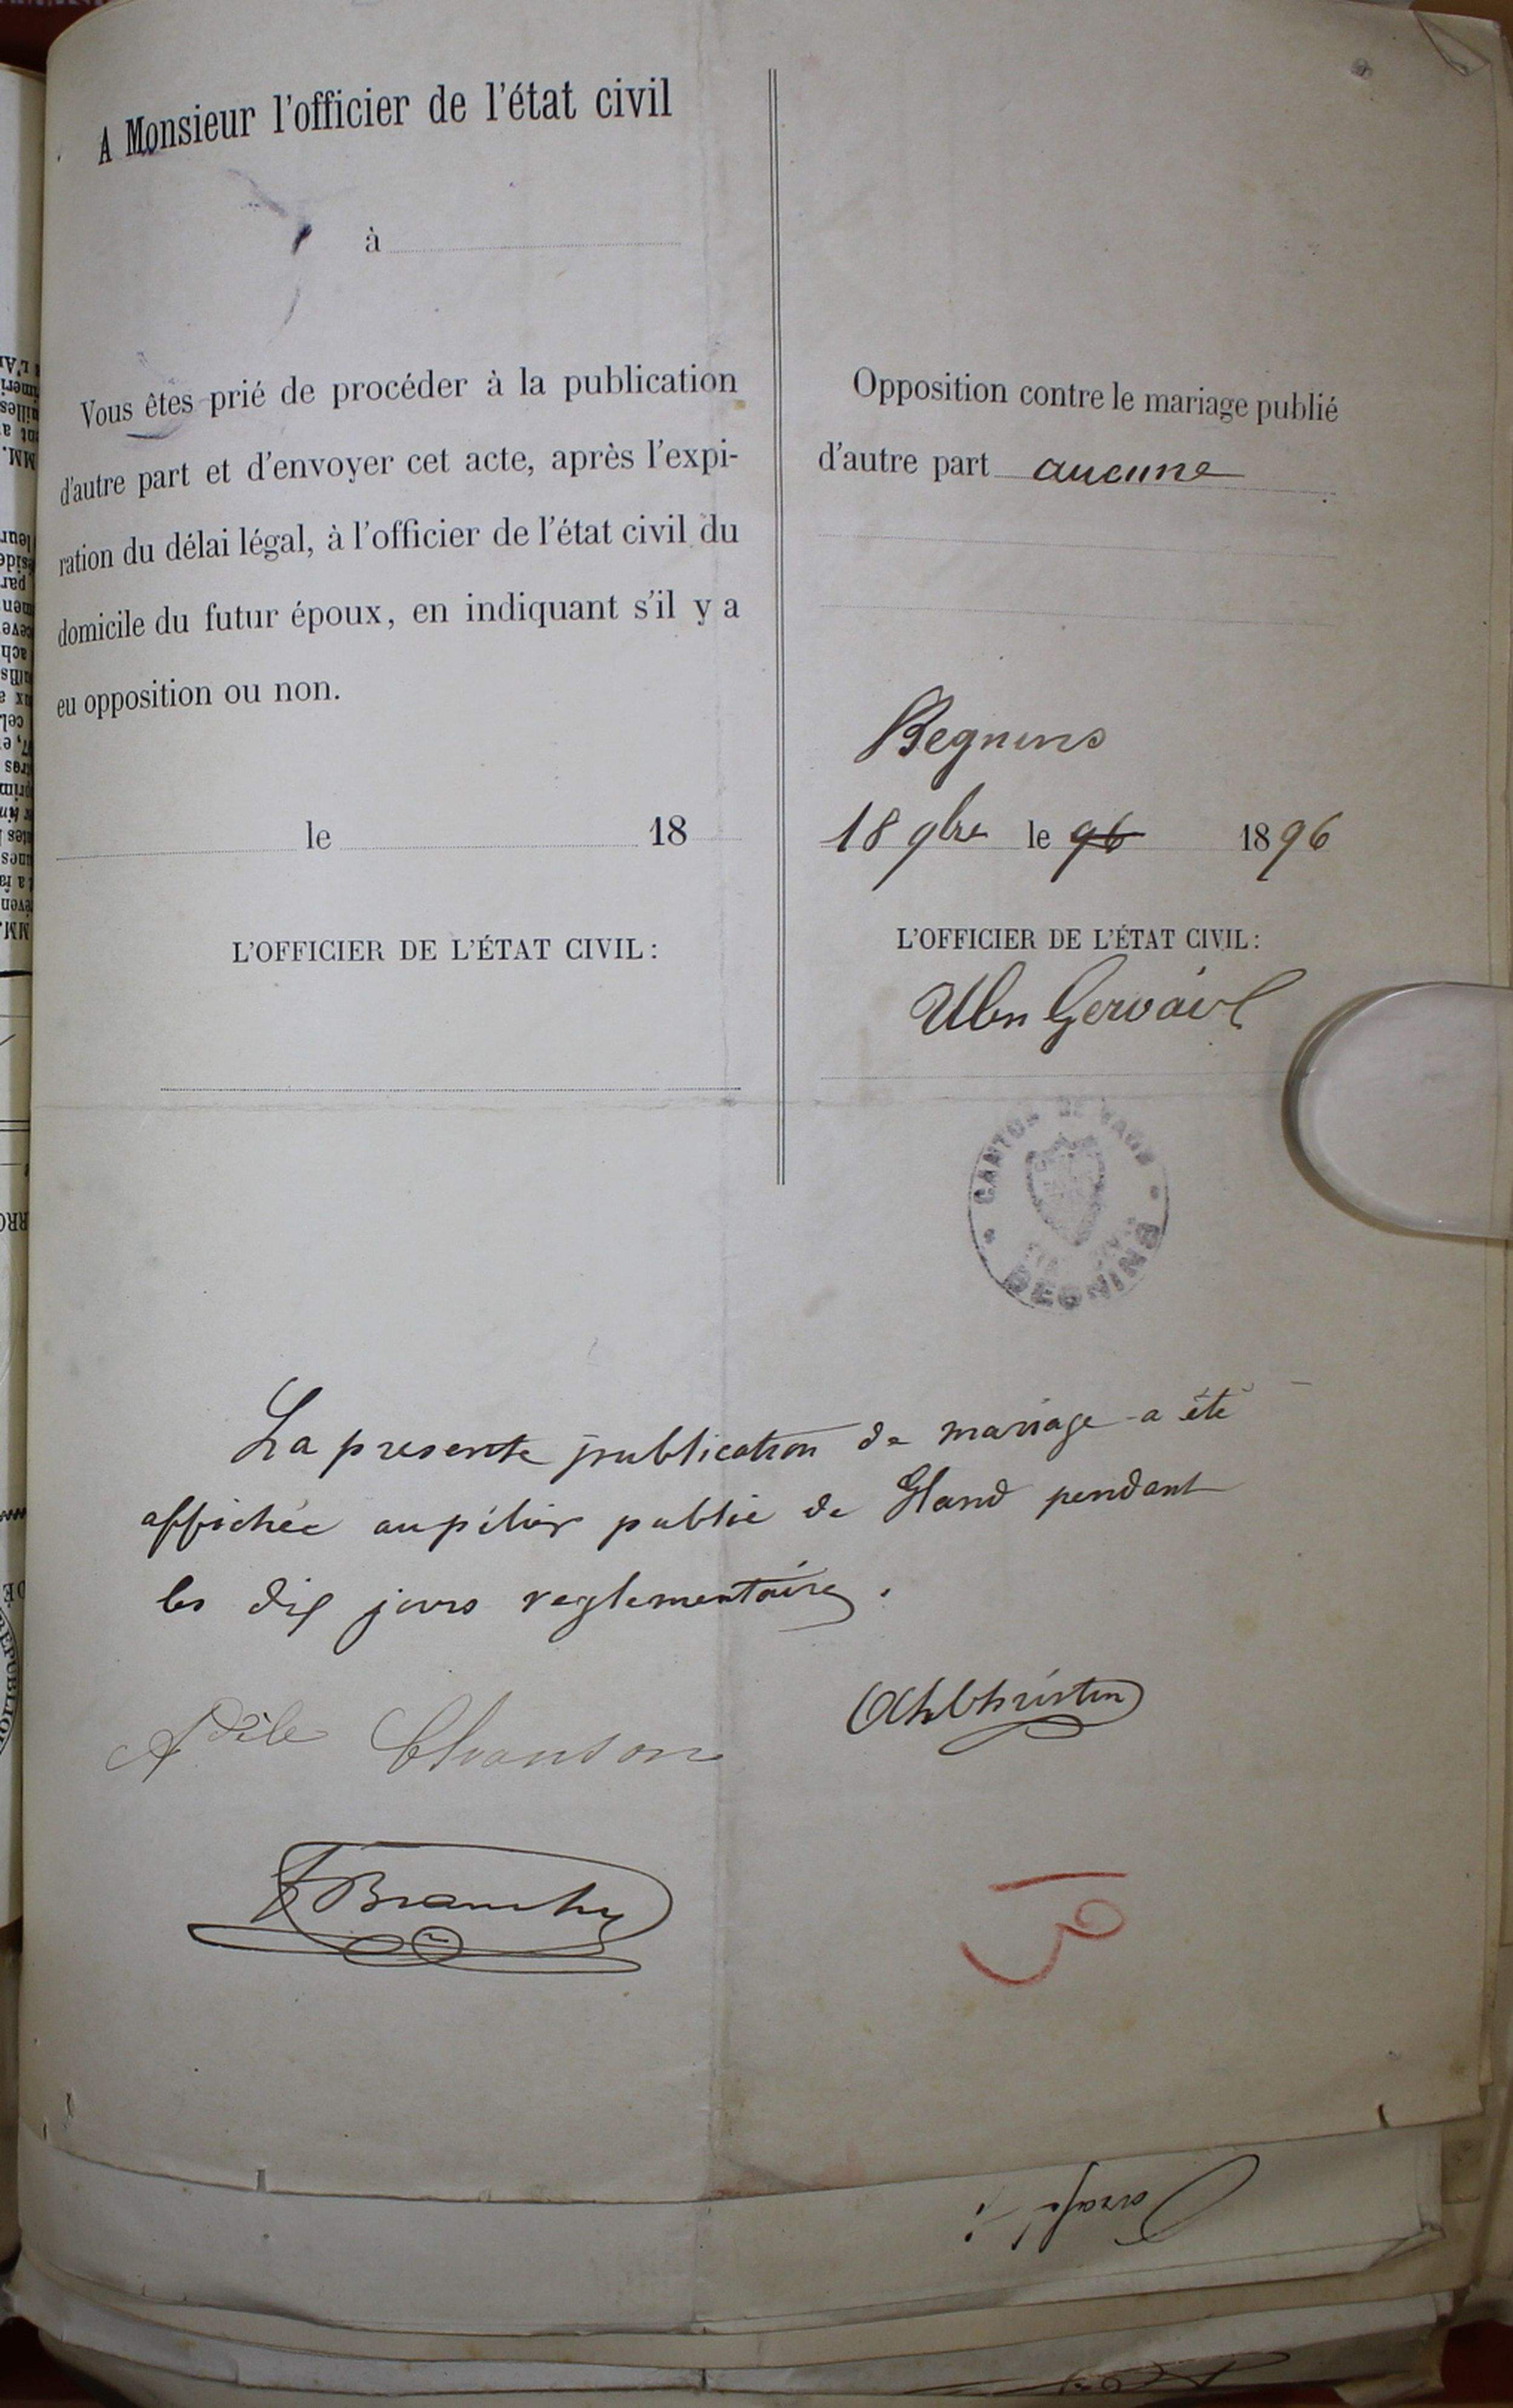 A Monsieur l'officier de l'état civil
à
Vous êtes prié de procéder à la publication
d'autre part et d'envoyer cet acte, après l'expi-
ration du délai légal, à l'officier de l'état civil du
domicile du futur époux, en indiquant s'il y a
eu opposition ou non.
le 18
L'OFFICIER DE L'ÉTAT CIVIL :
Opposition contre le mariage publié
d'autre part aucune
Begnins
18 9bre le 96 1896
L'OFFICIER DE L'ÉTAT CIVIL :
Gervaix
CANTON DE VAUD
BEGNINS
La presente publication de mariage a été
affichée au pilier public de Gland pendant
les dix jours reglementaires.
Adèle Chanson
Christin
Branchy